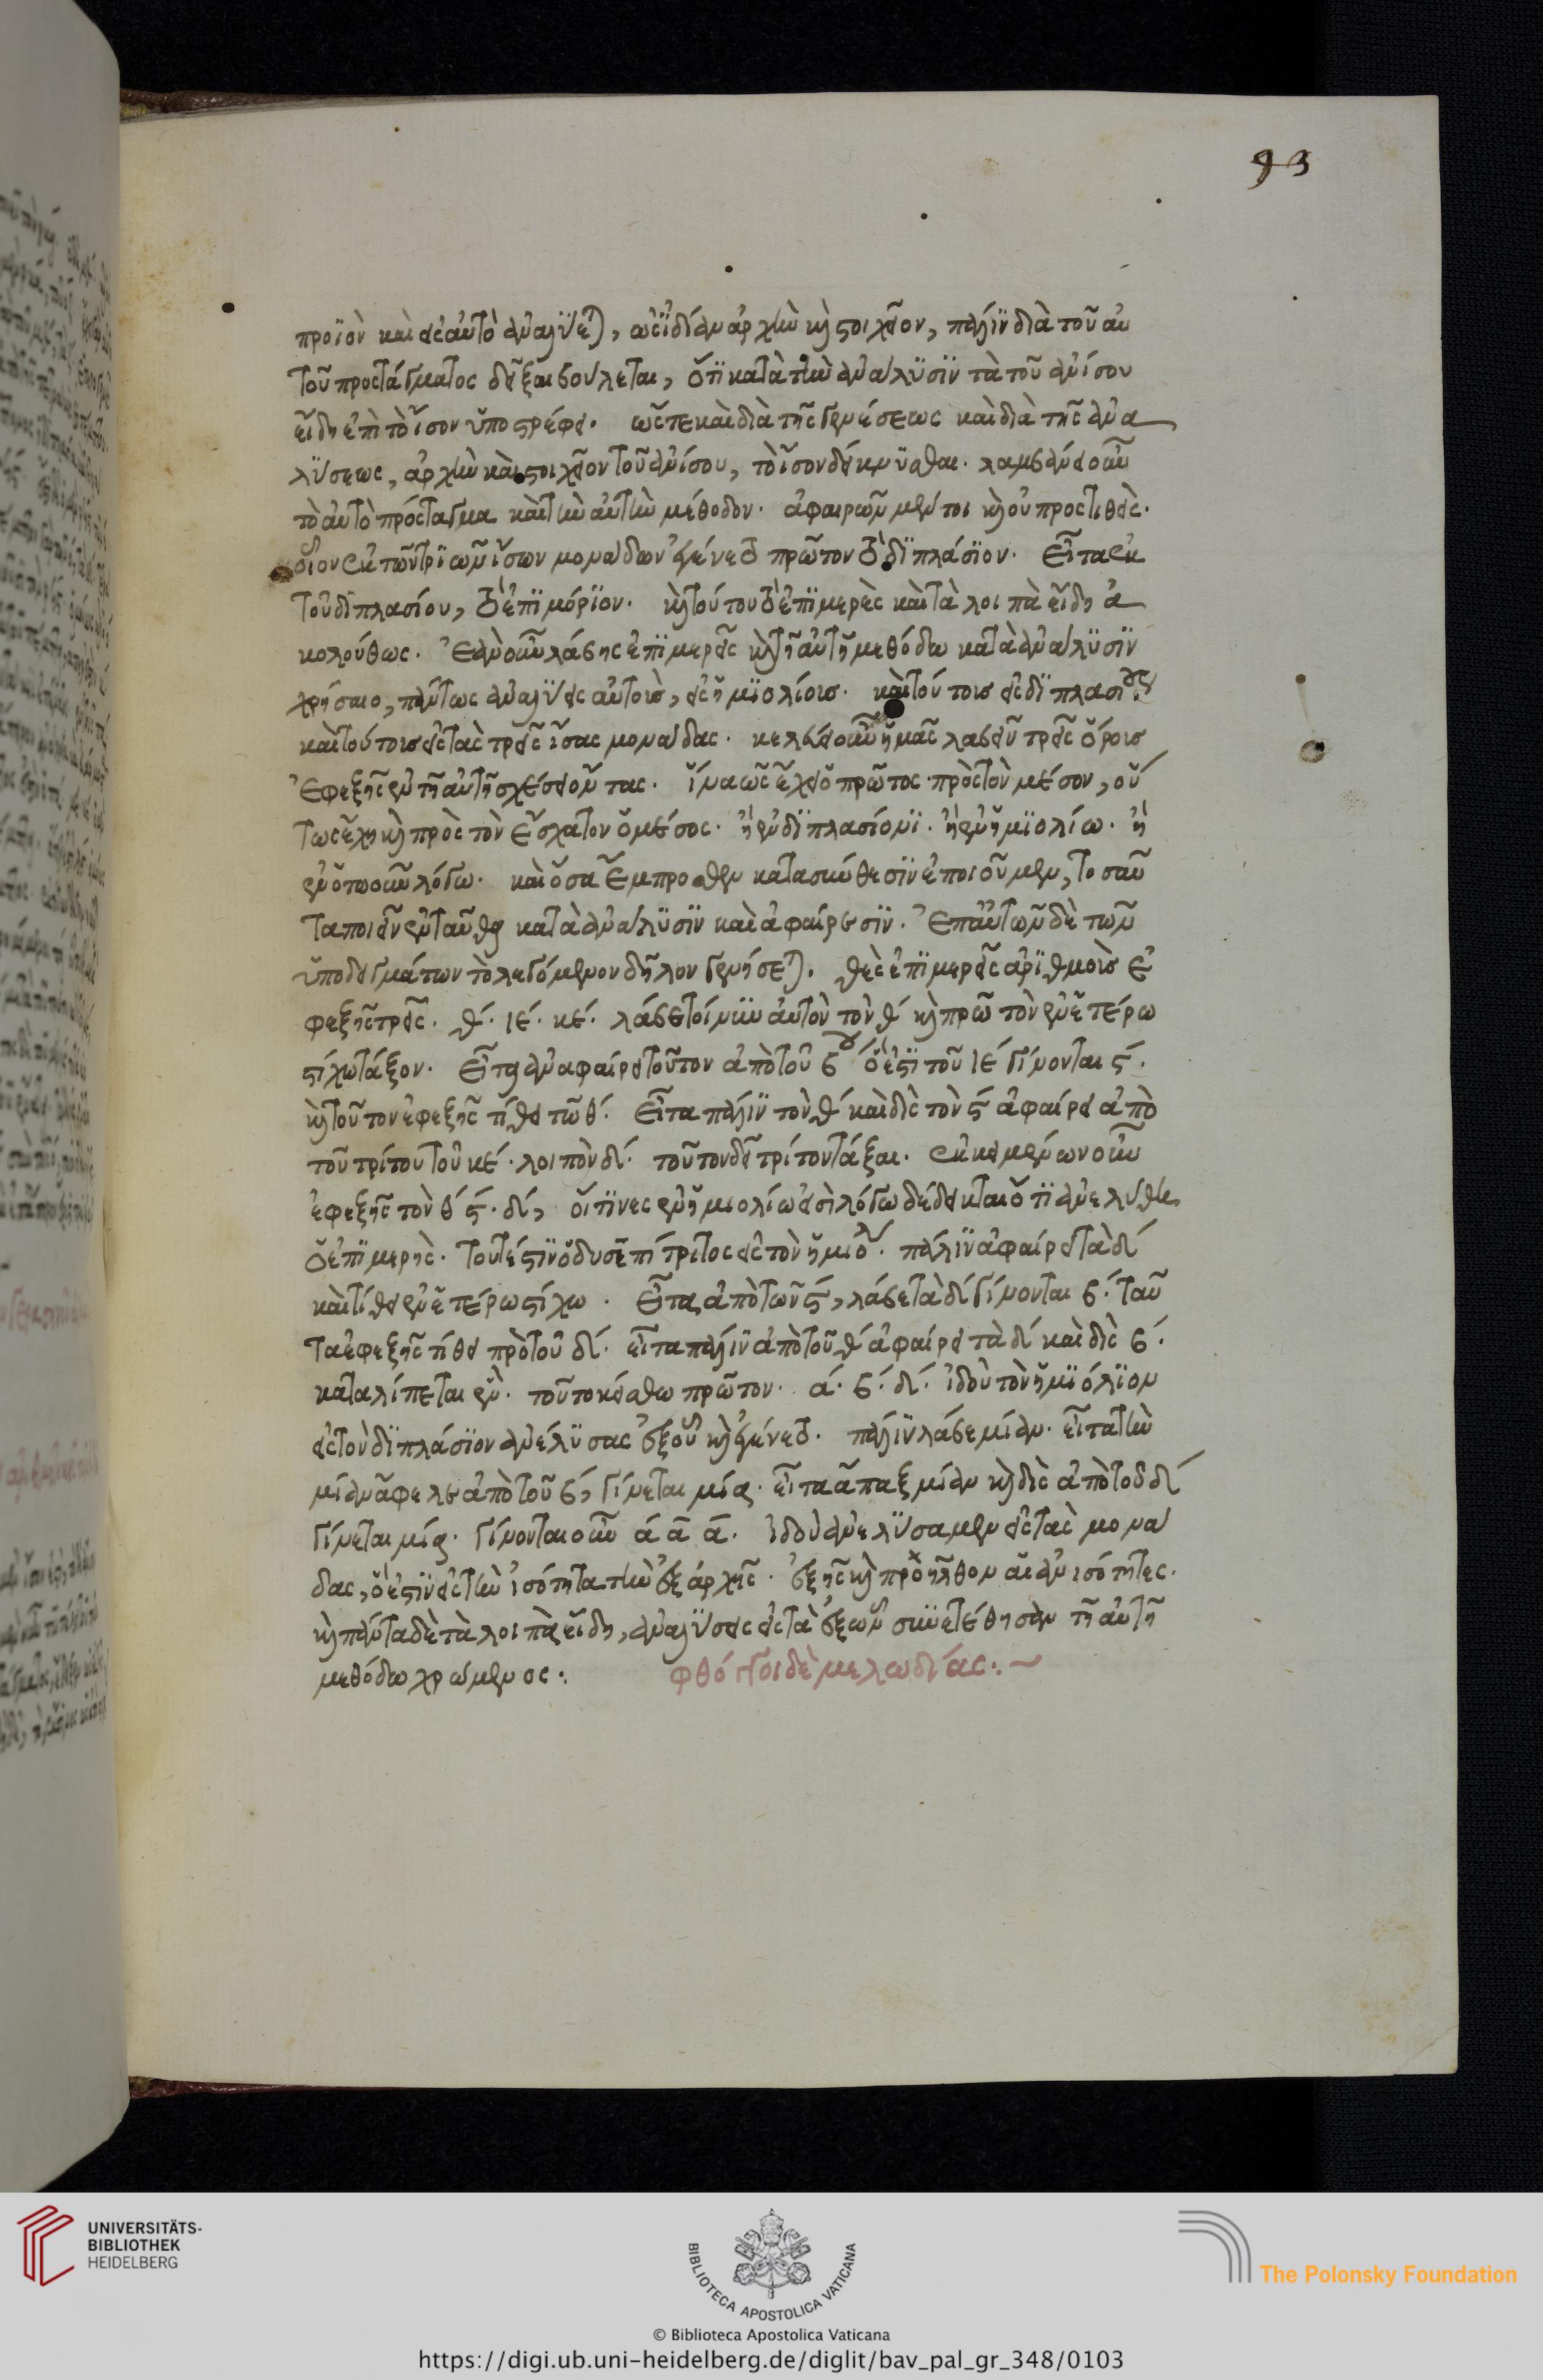 93
προϊὸν καὶ εἰς αὐτὸ ἀναλύεται, ὡς ἰδίαν ἀρχὴν καὶ στοιχεῖον, πάλιν διὰ τοῦ αὐ
τοῦ προστάγματος δεῖξαι βούλεται, ὅτι κατὰ τὴν ἀνάλυσιν τὰ τοῦ ἀνίσου
εἴδη ἐπὶ τὸ ἴσον ὑποστρέφει. ὥστε καὶ διὰ τῆς γενέσεως καὶ διὰ τῆς ἀνα
λύσεως, ἀρχὴν καὶ στοιχεῖον τοῦ ἀνίσου, τὸ ἴσον δείκνυσθαι. λαμβάνει οὖν
τὸ αὐτὸ πρόσταγμα καὶ τὴν αὐτὴν μέθοδον. ἀφαιρῶν μέντοι καὶ οὐ προστιθείς.
οἷον ἐκ τῶν τριῶν ἴσων μονάδων ἐγένετο πρῶτον τὸ διπλάσιον. Εἶτα ἐκ
τοῦ διπλασίου, τὸ ἐπιμόριον. καὶ τούτου τὸ ἐπιμερὲς καὶ τὰ λοιπὰ εἴδη ἀ
κολούθως. Ἐὰν οὖν λάβης ἐπιμερεῖς καὶ τῇ αὐτῇ μεθόδω κατὰ ἀνάλυσιν
χρήσαιο, πάντως ἀναλύεις αὐτοὺς, εἰς ἡμιολίους. καὶ τούτους εἰς διπλασίους
καὶ τούτους εἰς τὰς τρεῖς ἴσας μονάδας. κελεύει οὖν ἡμᾶς λαβεῖν τρεῖς ὅρους
Ἐφεξῆς ἐν τῇ αὐτῇ σχέσει ὄντας. ἵνα ὡς ἔχει ὁ πρῶτος πρὸς τὸν μέσον, οὕ
τως ἔχη καὶ πρὸς τὸν ἔσχατον ὁ μέσος. ἢ ἐν διπλασίονι. ἢ ἐν ἡμιολίω. ἢ
ἐν ὁποωοῦν λόγω. καὶ ὅσα ἔμπροσθεν κατὰ σύνθεσιν ἐποιοῦμεν, τοσαῦ
τα ποιεῖν ἐνταῦθα κατὰ ἀνάλυσιν καὶ ἀφαίρεσιν. Ἐπ' αὐτῶν δὲ τῶν
ὑποδειγμάτων τὸ λεγόμενον δῆλον γενήσεται. θὲς ἐπιμερεῖς ἀριθμοὺς ἐ
φεξῆς τρεῖς. θ. ιε. κε. λάβε τοίνυν αὐτὸν τὸν θ καὶ πρῶτον ἐν ἑτέρω
στίχω τάξον. Εἶτα ἀναφαίρει τοῦτον ἀπὸ τοῦ βου ὅ ἐστι τοῦ ιε γίνονται ς.
καὶ τοῦτον ἐφεξῆς τίθει τῶ θ. Εἶτα πάλιν τὸν θ καὶ δὶς τὸν ς ἀφαίρει ἀπὸ
τοῦ τρίτου τοῦ κε. λοιπὸν δ. τοῦτον δεῖ τρίτον τάξαι. ἐκ κειμένων οὖν
ἐφεξῆς τὸν θ ς. δ, οἵτινες ἐν ἡμιολίω εἰσὶ λόγω δέδεικται ὅτι ἀνελύθη
ὁ ἐπιμερής. τουτέστιν ὁ δυσεπίτριτος εἰς τὸν ἡμιόλ. πάλιν ἀφαίρει τὰ δ
καὶ τίθει ἐν ἑτέρω στίχω. Εἶτα ἀπὸ τῶν ς, λάβε τὰ δ γίνονται β. ταῦ
τα ἐφεξῆς τίθει πρὸ τοῦ δ. εἶτα πάλιν ἀπὸ τοῦ θ ἀφαίρει τὰ δ καὶ δὶς β.
καταλίπεται ἕν. τοῦτο κείσθω πρῶτον. α. β. δ. ἰδοὺ τὸν ἡμιόλιον
εἰς τὸν διπλάσιον ἀνέλυσας ἐξ οὗ καὶ ἐγένετο. πάλιν λάβε μίαν. εἶτα τὴν
μίαν ἄφελε ἀπὸ τοῦ β, γίνεται μία. εἶτα ἅπαξ μίαν καὶ δὶς ἀπὸ τοῦ δ
γίνεται μία. γίνονται οὖν α α α. ἰδοὺ ἀνελύσαμεν εἰς τὰς μονά
δας, ὅ ἐστιν εἰς τὴν ἰσότητα τὴν ἐξ ἀρχῆς. ἐξ ἧς καὶ προῆλθον αἱ ἀνισότητες.
καὶ πάντα δὲ τὰ λοιπὰ εἴδη, ἀναλύσεις εἰς τὰ ἐξ ὧν συνετέθησαν τῇ αὐτῇ
μεθόδω χρώμενος:. φθόγγοι δὲ μελωδίας:.~
UNIVERSITÄTS-
BIBLIOTHEK
HEIDELBERG
BIBLIOTECA APOSTOLICA VATICANA
The Polonsky Foundation
© Biblioteca Apostolica Vaticana
https://digi.ub.uni-heidelberg.de/diglit/bav_pal_gr_348/0103